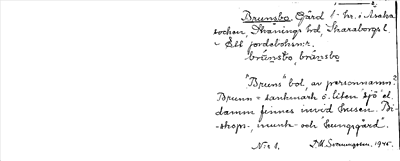 Brunsbo Gård 1 hr. i Asaka
socken, Skånings hd, Skaraborgs l.
- Ett jordebokhnr.
brúnsbo, brùnsbo
"Bruns" bol, av personnamn?
Brunn = sankmark o. liten "sjö" el.
damm finnes invid husen. Bi-
shops-, munk- och "kungsgård".
N:r 1. 1945.